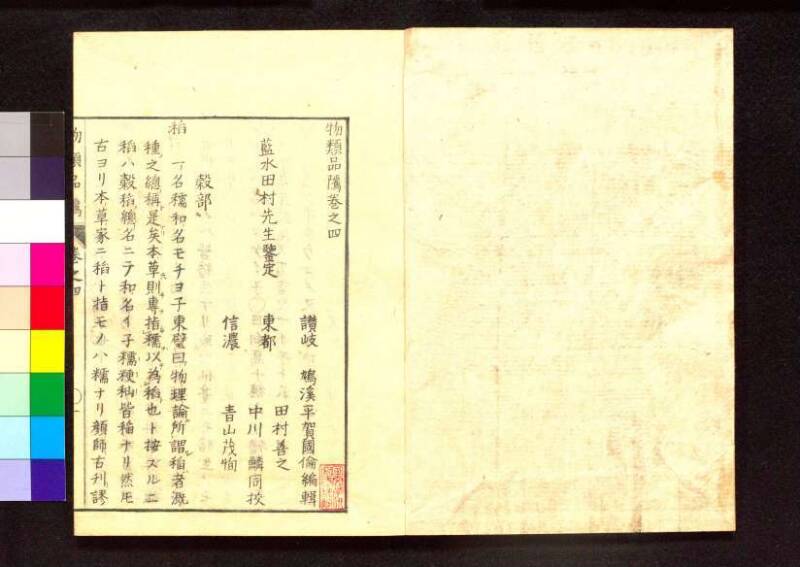 物類品隲巻之四
讃岐　鳩溪平賀國倫編輯
藍水田村先生鑒定　東都　田村善之
中川鱗同挍
信濃　青山茂恂
穀部
稻　一名穤和名モチヨ子東璧曰物理論所謂稻者溉
種之總稱是矣本草則專指穤以為稻也ト按ズルニ
稻ハ穀稻總名ニテ和名イ子穤粳籼皆稲ナリ然モ
古ヨリ本草家ニ稻ト指モノハ糯ナリ顔師古刋謬
物類品隲　巻之四